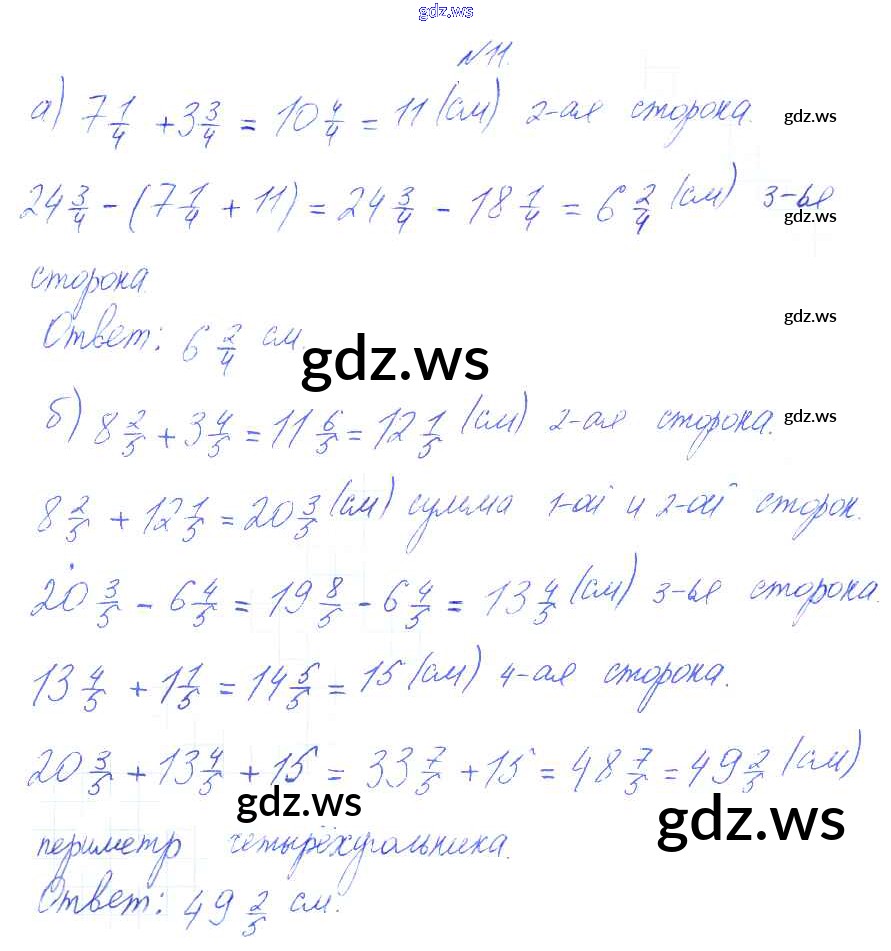 gdz.ws
№11.
а) 7 1/4 + 3 3/4 = 10 4/4 = 11 (см) 2-ая сторона. gdz.ws
24 3/4 - (7 1/4 + 11) = 24 3/4 - 18 1/4 = 6 2/4 (см) 3-ья gdz.ws
сторона.
Ответ: 6 2/4 см. gdz.ws
gdz.ws
б) 8 2/5 + 3 4/5 = 11 6/5 = 12 1/5 (см) 2-ая сторона. gdz.ws
8 2/5 + 12 1/5 = 20 3/5 (см) сумма 1-ой и 2-ой сторон.
20 3/5 - 6 4/5 = 19 8/5 - 6 4/5 = 13 4/5 (см) 3-ья сторона.
13 4/5 + 1 1/5 = 14 5/5 = 15 (см) 4-ая сторона.
20 3/5 + 13 4/5 + 15 = 33 7/5 + 15 = 48 7/5 = 49 2/5 (см)
gdz.ws gdz.ws
периметр четырёхугольника.
Ответ: 49 2/5 см.